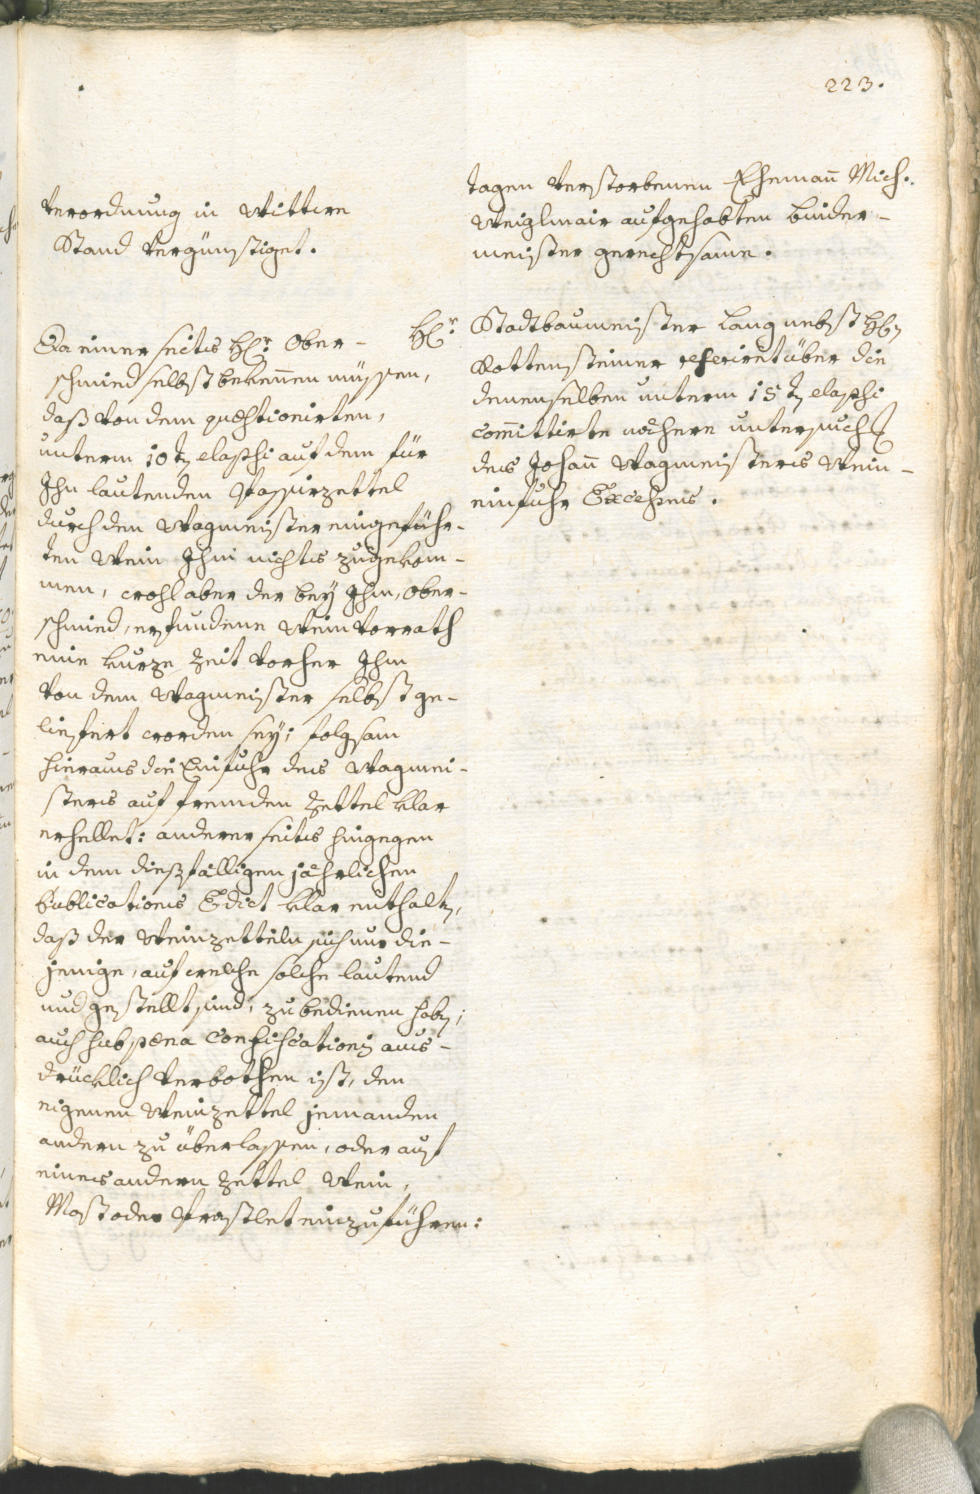 223.
verordnung in Wittwe
Stand vergünstiget.
Da einer seits H: Ober-
schmied selbst bekennen müssen,
daß von dem quæstionirten,
unterm 10t elapsi auf dem für
Ihn lautenden Passirzettel
durch den Wagmeister eingeführ-
ten Wein Ihm nichts zugekom-
men, wohl aber der bey Ihm, Ober-
schmied, erfundene Wein vorrath
eine kurze Zeit vorher Ihm
von dem Wagmeister selbst ge-
liefert worden sey; folgsam
hieraus die Einfuhr des Wagmei-
sters auf fremden Zettel klar
erhellet: anderer seits hingegen
in dem dießfälligen jährlichen
Publications Edict klar enthalt,
daß der Weinzetteln sich nur die-
jenige, auf welche solche lautend
und gestellt sind, zu bedienen hab,
auch sub pœna Confiscationis aus-
drücklich verbothen ist, den
eigenen Weinzettel jemanden
andern zu überlassen, oder auf
eines andern Zettel Wein,
Most oder Prastlet einzuführen:
tagen verstorbenen Ehemañ Mich.
Weiglmair aufgehabten binder-
meister gerechtsame.
H: Stadtbaumeister Lang nebst H:
Rottensteiner referirt über die
denenselben unterm 15t elapsi
com̃ittirte nähere untersuchg
des Johañ Wagmeisters Wein-
einfuhr Excesses.